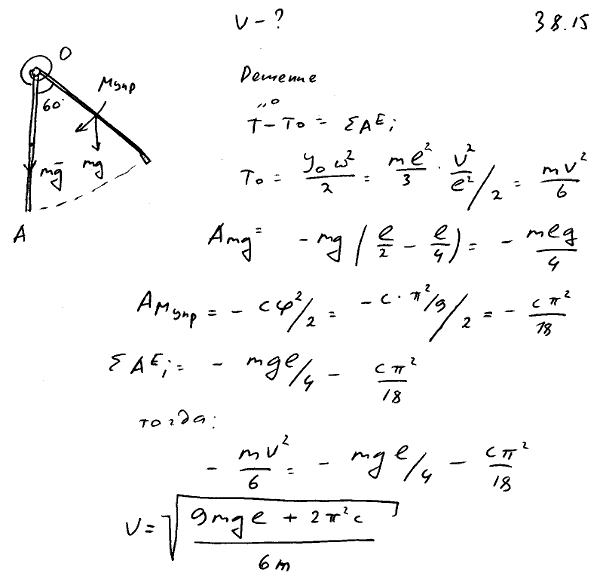 V - ?
38.15
Решение
O
60°
Mупр
mg
mg
A
"0
T - T₀ = ΣAᴱᵢ
T₀ = y₀ω²/2 = ml²/3 · v²/l² / 2 = mv²/6
A mg = - mg (l/2 - l/4) = - mlg/4
A Mупр = - cφ²/2 = - c · π²/9 / 2 = - cπ²/18
ΣAᴱᵢ = - mgl/4 - cπ²/18
тогда:
- mv²/6 = - mgl/4 - cπ²/18
V = √((9mgl + 2π²c)/6m)